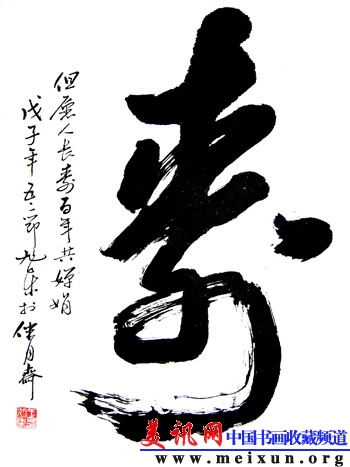 寿
但愿人长寿百年共婵娟
戊子年五二节 月斋
美讯网 中国书画收藏频道
www.meixun.org